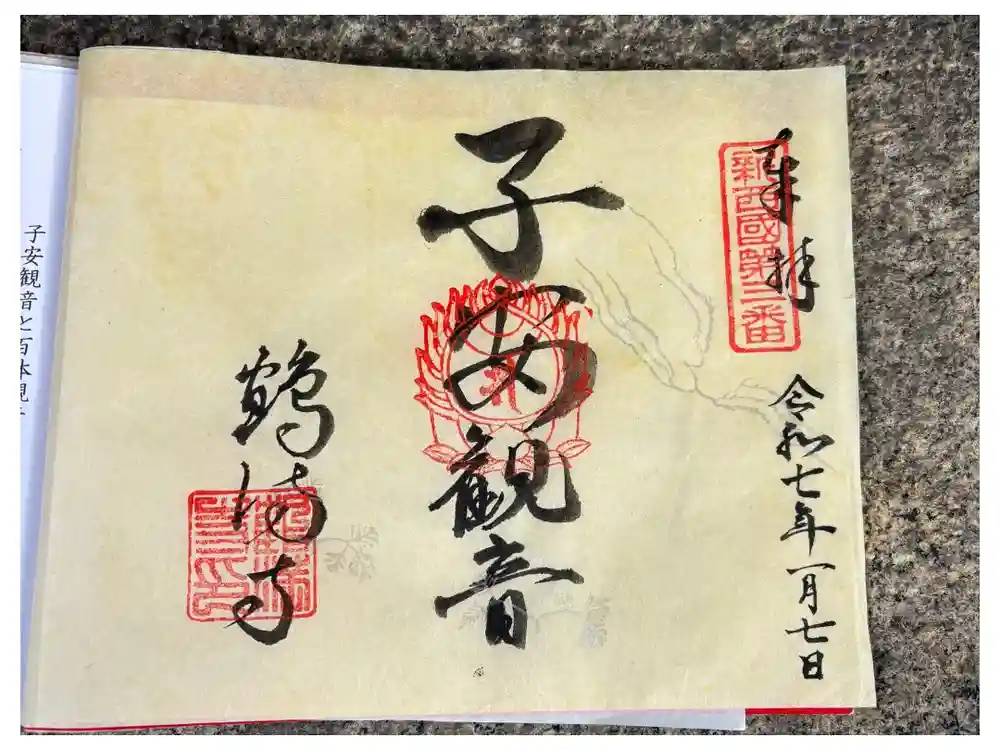 奉拝
新西國第三番
令和七年一月七日
子安観音
鶴満寺
子安観音と百体観